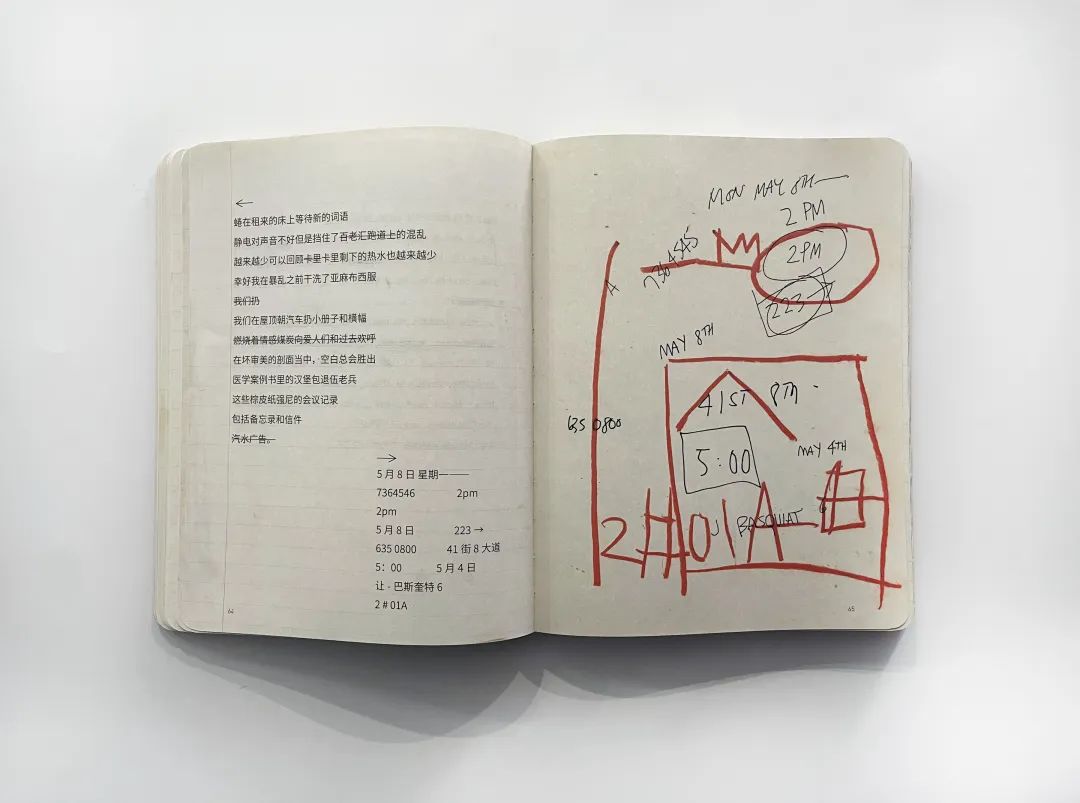 ←
蜷在租来的床上等待新的词语
静电对声音不好但是挡住了百老汇跑道上的混乱
越来越少可以回顾卡里卡里剩下的热水也越来越少
幸好我在暴乱之前干洗了亚麻布西服
我们扔
我们在屋顶朝汽车扔小册子和横幅
燃烧着情感煤炭向爱人们和过去欢呼
在坏审美的剖面当中，空白总会胜出
医学案例书里的汉堡包退伍老兵
这些棕皮纸强尼的会议记录
包括备忘录和信件
汽水广告。
→
5 月 8 日 星期一——
7364546 2pm
2pm
5 月 8 日 223 →
635 0800 41 街 8 大道
5：00 5 月 4 日
让 - 巴斯奎特 6
2 # 01A
64
MON MAY 8TH
2 PM
2PM
223
MAY 8TH
41ST 8TH
635 0800
5:00
MAY 4TH
J BASQUIAT 6
2#01A
65